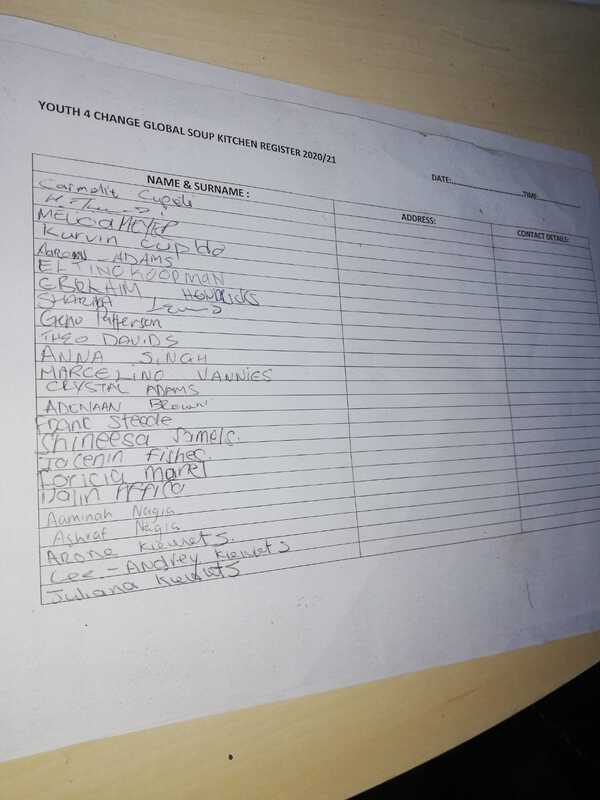 YOUTH 4 CHANGE GLOBAL SOUP KITCHEN REGISTER 2020/21
DATE:..............................TIME..................
NAME & SURNAME :
ADDRESS:
CONTACT DETAILS:
Carmelit Cupido
MELICIA MEYER
Kurvin Cupido
AARONN - ADAMS
ELTINO KOOPMAN
EBRAHIM HENDRICKS
SHARIFA
Geno Patterson
THEO DAVIDS
ANNA SINGH
MARCELINO VANNIES
CRYSTAL ADAMS
ADENAAN BROWN
FRANC Steede
Shineesa Jamels.
Jacenin fishes.
Loricia Manel
Dalin Africa
Aaminah Nagia
Ashraf Nagia
Arone Kiewets.
Lee - Andrey Kiewets
Juliana Kiewets